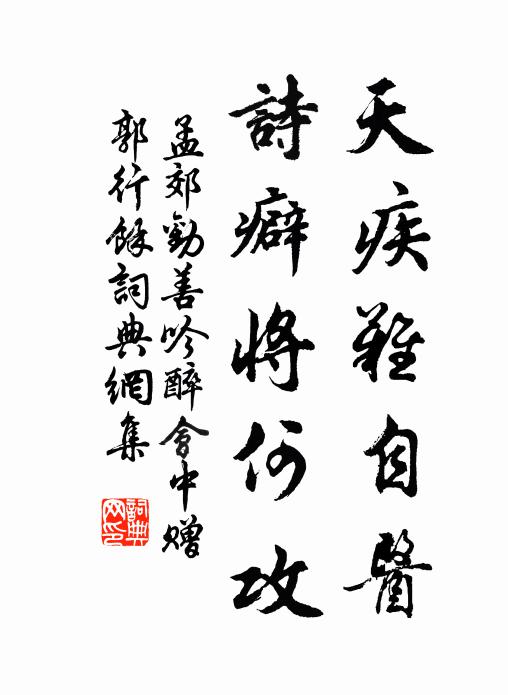 天疾難自醫
詩癖將何攻
孟郊勸善吟醉會中贈
郭行餘詞典網集
詞典網印